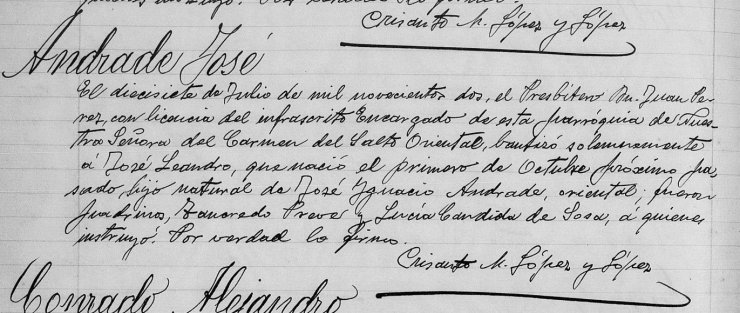 Crisanto M. López y López
Andrade José
El diecisiete de Julio de mil novecientos dos, el Presbítero Dn. Juan Pe-
rez, con licencia del infrascrito Encargado de esta parróquia de Nues-
tra Señora del Carmen del Salto Oriental, bautizó solemnemente
á José Leandro, que nació el primero de Octubre próximo pa-
sado, hijo natural de José Ygnacio Andrade, oriental; fueron
padrinos, Tancredo Prevé y Lucía Candida de Sosa, á quienes
instruyó. Por verdad lo firmo.
Crisanto M. López y López
Conrado Alejandro